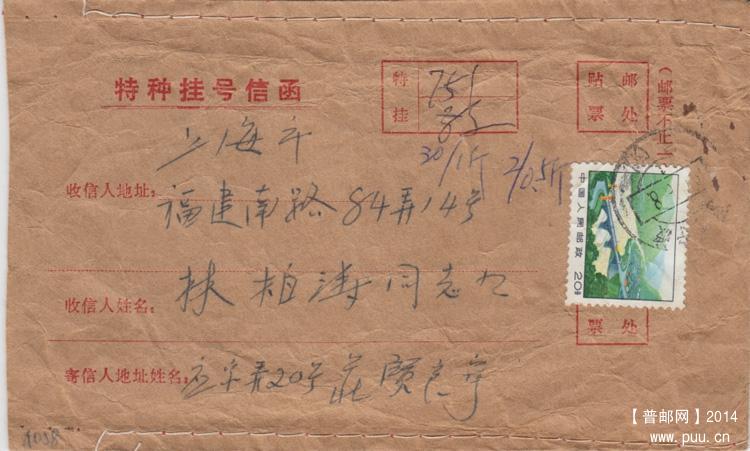 特种挂号信函
特挂
751
85
贴邮
票处
（邮票不止一
30/1斤 2/0.5斤
上海市
收信人地址：
福建南路84弄14号
中国人民邮政
20分
收信人姓名：
林柏涛同志收
票处
寄信人地址姓名：
20号莊寶
1058
【普邮网】2014
www.puu.cn